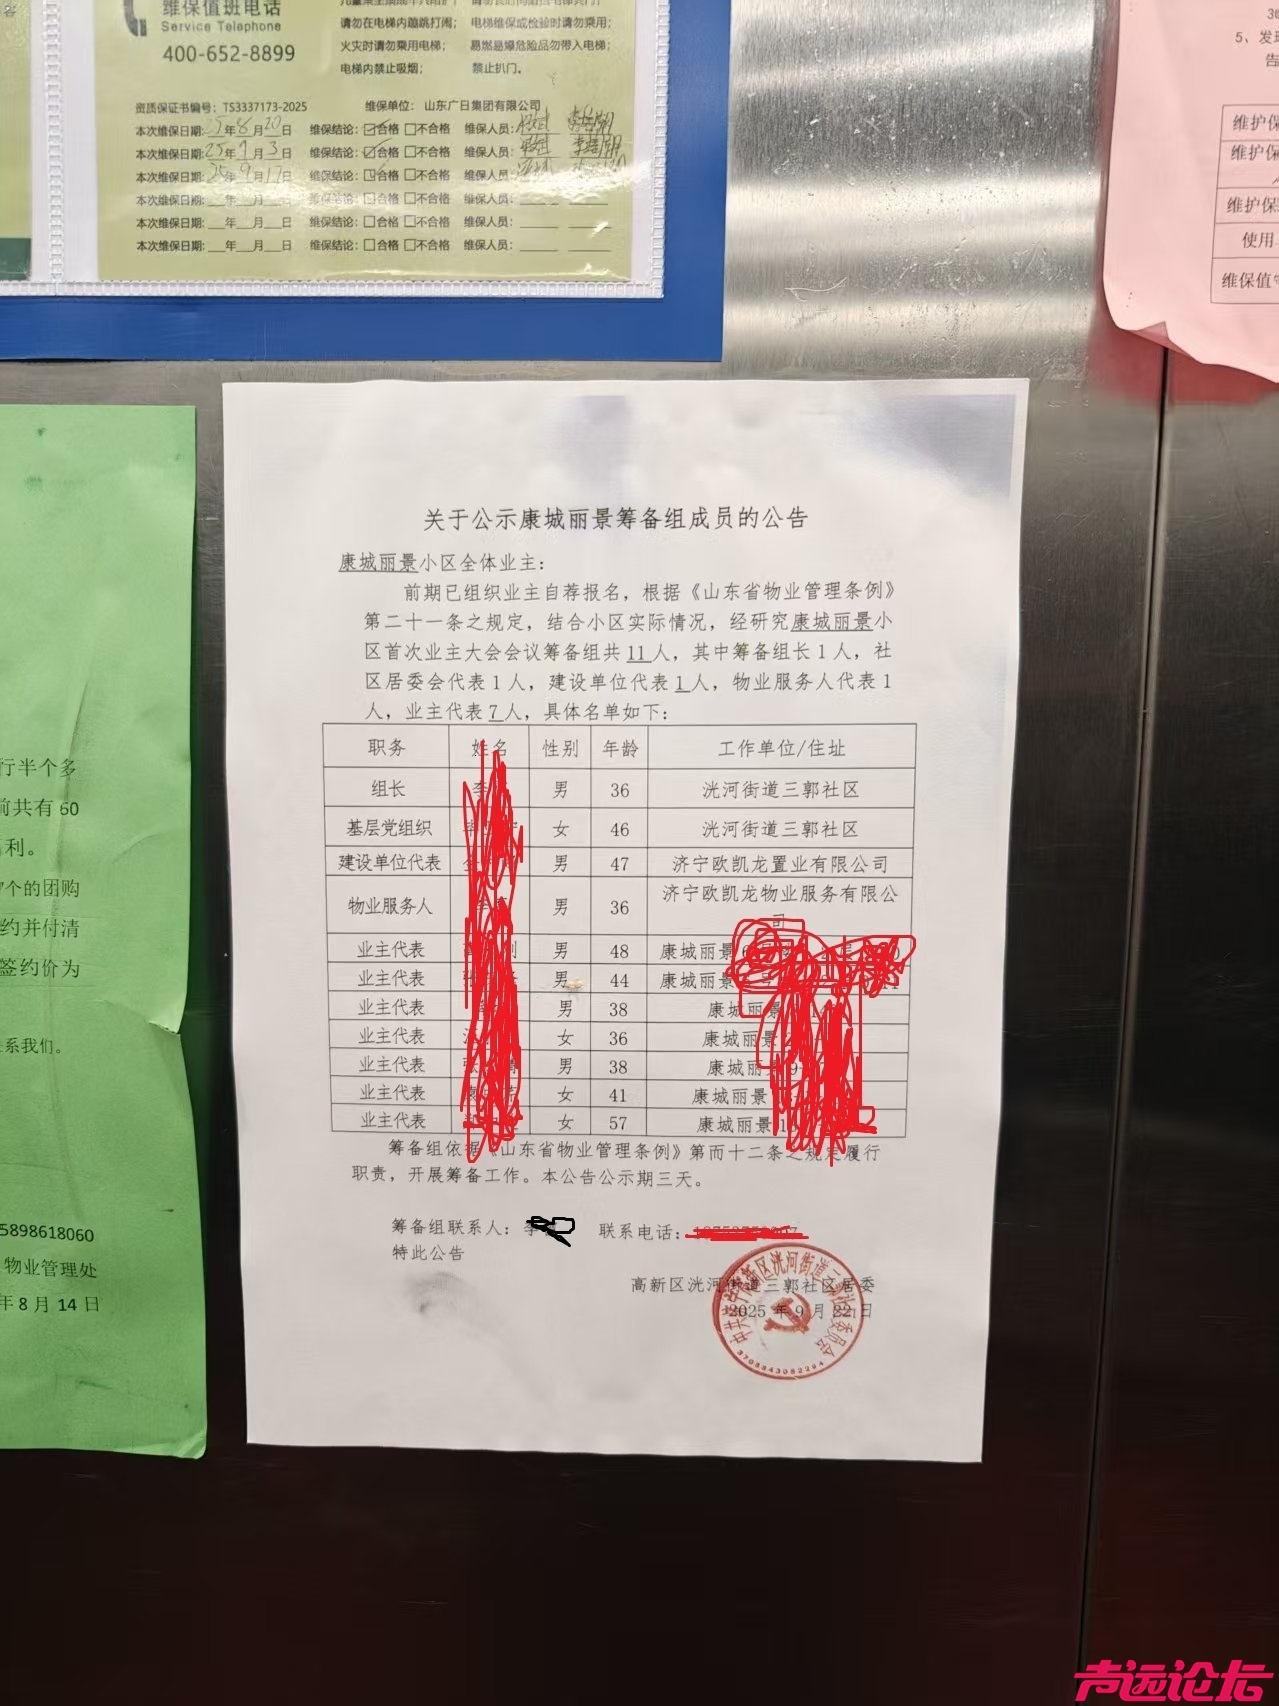 维保值班电话
Service Telephone
400-652-8899
请勿在电梯内蹦跳打闹；
电梯维保或检验时请勿乘用；
火灾时请勿乘用电梯；
易燃易爆危险品勿带入电梯；
电梯内禁止吸烟；
禁止扒门。
资质保证书编号：TS3337173-2025
维保单位：山东广日集团有限公司
本次维保日期:25年8月20日 维保结论：☑合格 □不合格 维保人员:
本次维保日期:25年9月3日 维保结论：☑合格 □不合格 维保人员:
本次维保日期:25年9月17日 维保结论：☑合格 □不合格 维保人员:
本次维保日期:__年__月__日 维保结论：□合格 □不合格 维保人员:
本次维保日期:__年__月__日 维保结论：□合格 □不合格 维保人员:
本次维保日期:__年__月__日 维保结论：□合格 □不合格 维保人员:
5、发现
告
维护保
维护保
维护保
使用
维保值
行半个多
前共有60
利。
个的团购
约并付清
签约价为
系我们。
5898618060
物业管理处
年8月14日
关于公示康城丽景筹备组成员的公告
康城丽景小区全体业主：
前期已组织业主自荐报名，根据《山东省物业管理条例》
第二十一条之规定，结合小区实际情况，经研究康城丽景小
区首次业主大会会议筹备组共11人，其中筹备组长1人，社
区居委会代表1人，建设单位代表1人，物业服务人代表1
人，业主代表7人，具体名单如下：
职务 姓名 性别 年龄 工作单位/住址
组长 李 男 36 洸河街道三郭社区
基层党组织 女 46 洸河街道三郭社区
建设单位代表 男 47 济宁欧凯龙置业有限公司
物业服务人 男 36 济宁欧凯龙物业服务有限公
司
业主代表 男 48 康城丽景
业主代表 张 男 44 康城丽景
业主代表 男 38 康城丽景
业主代表 女 36 康城丽景
业主代表 张 男 38 康城丽
业主代表 女 41 康城丽景
业主代表 女 57 康城丽景
筹备组依据《山东省物业管理条例》第而十二条之规定履行
职责，开展筹备工作。本公告公示期三天。
筹备组联系人：李 联系电话：
特此公告
高新区洸河街道三郭社区居委
2025年9月22日
声远论坛